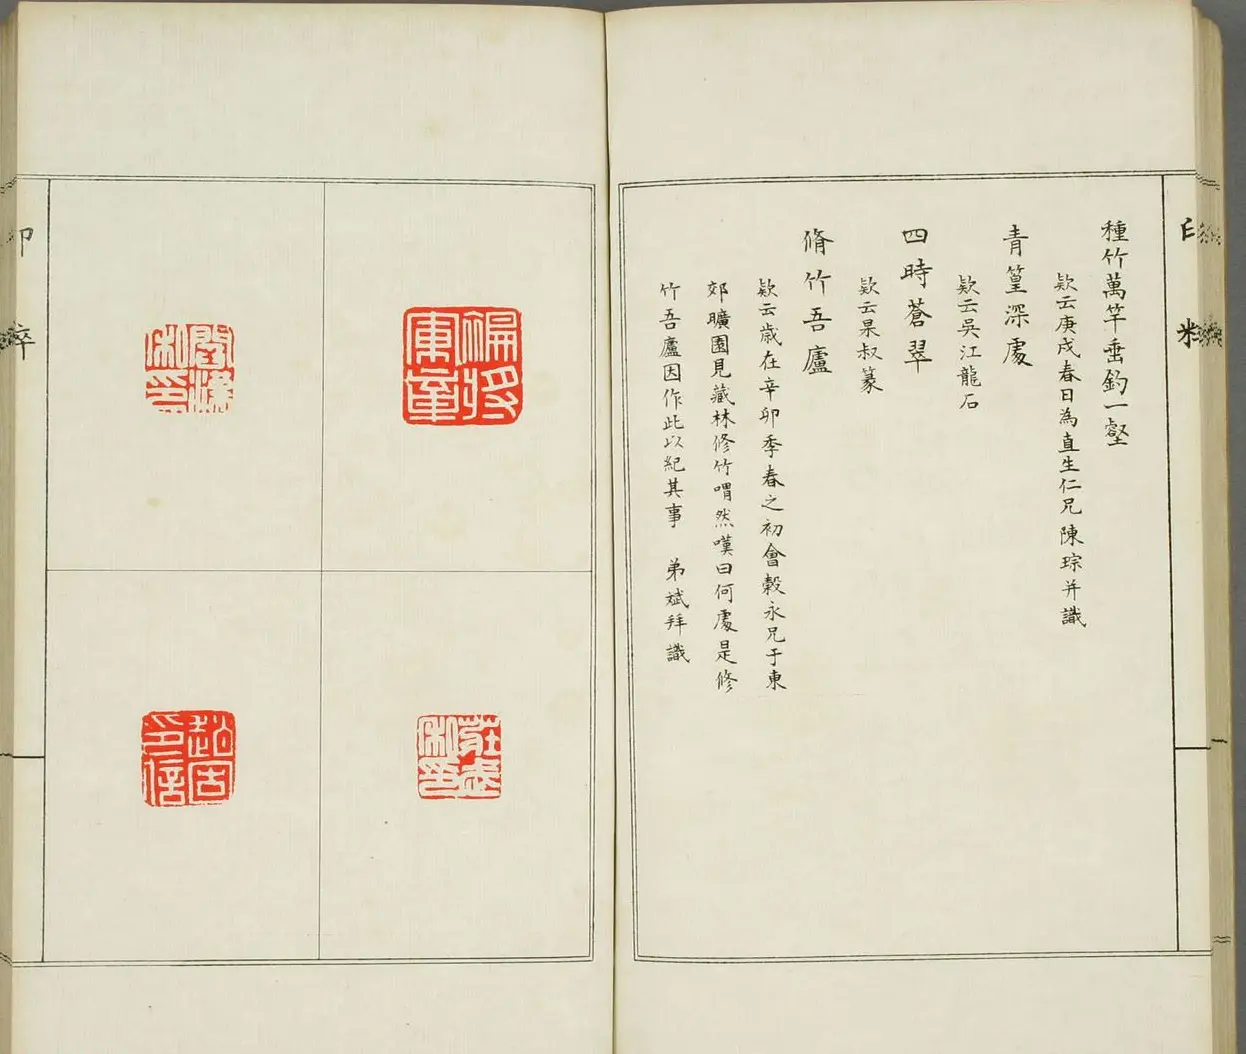 種竹萬竿垂釣一壑
欵云庚戌春日為直生仁兄陳琮并識
青篁深處
欵云吳江龍石
四時蒼翠
欵云杲叔篆
脩竹吾廬
欵云歲在辛卯季春之初會榖永兄于東
郊曠園見藏林修竹喟然嘆曰何處是修
竹吾廬因作此以紀其事 弟斌拜識
偏將軍章
莊 私印
私印
趙古印信
印